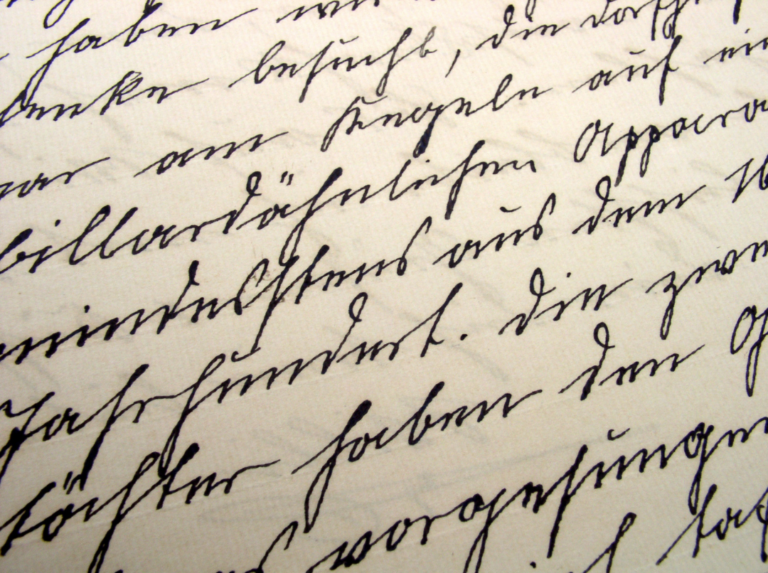 haben wi
denke besucht, die dorf
war am Kegeln auf ein
billardähnlichen Appara
mindestens aus dem 16
Jahrhundert. Die zwe
töchter haben den G
vorgesungen